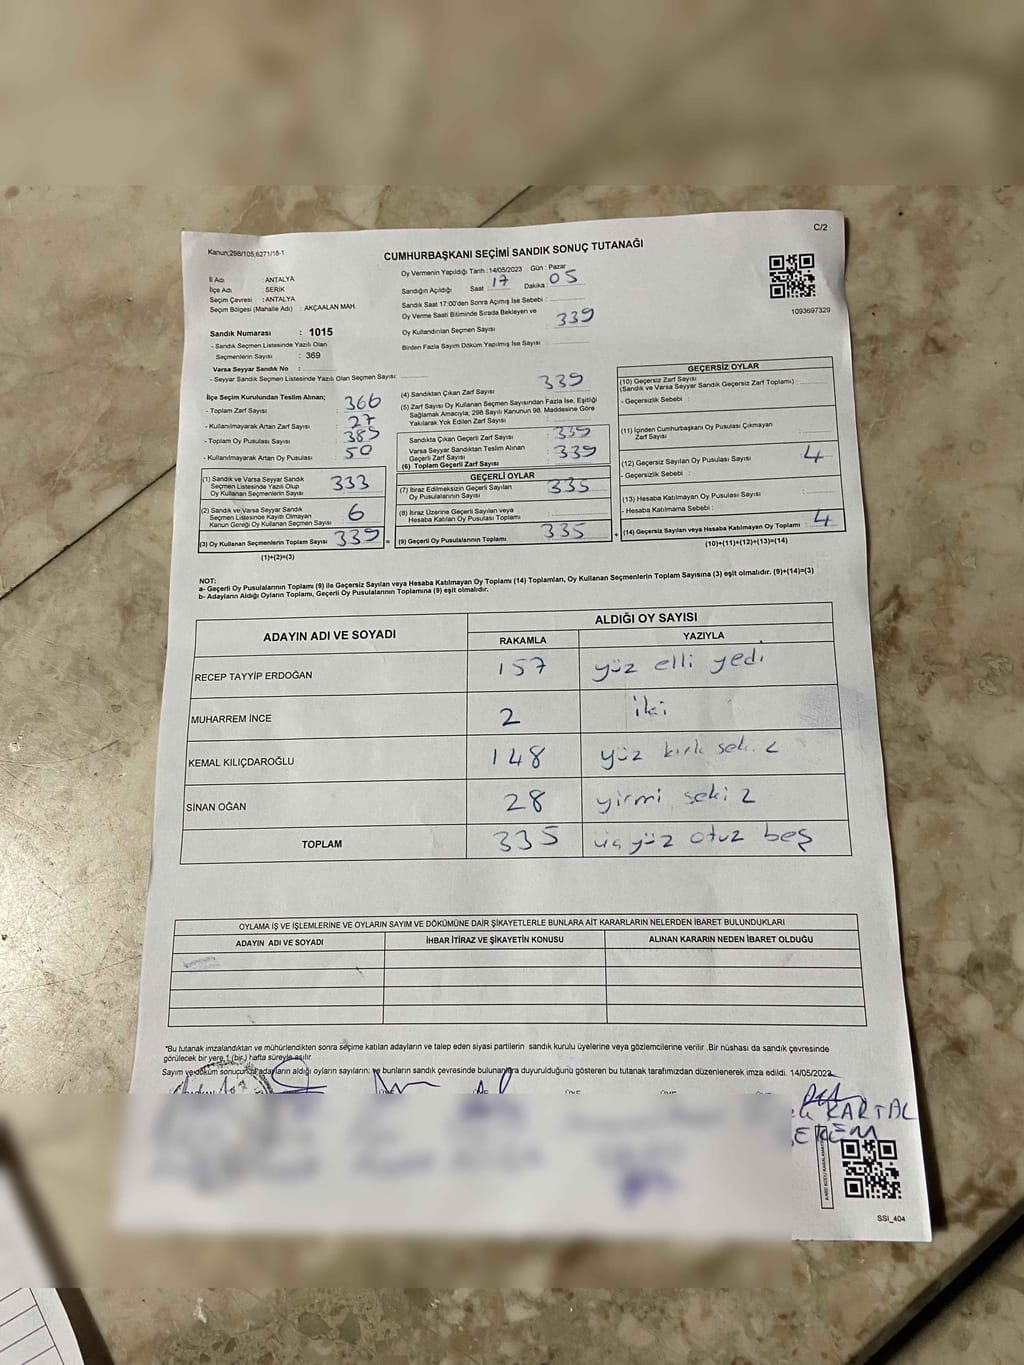 Kanun;298/105;6271/18-1
C/2
CUMHURBAŞKANI SEÇİMİ SANDIK SONUÇ TUTANAĞI
İl Adı : ANTALYA
İlçe Adı : SERİK
Seçim Çevresi : ANTALYA
Seçim Bölgesi (Mahalle Adı) : AKÇAALAN MAH.
Sandık Numarası : 1015
- Sandık Seçmen Listesinde Yazılı Olan
Seçmenlerin Sayısı : 369
Varsa Seyyar Sandık No :
- Seyyar Sandık Seçmen Listesinde Yazılı Olan Seçmen Sayısı:
Oy Vermenin Yapıldığı Tarih : 14/05/2023 Gün : Pazar
Sandığın Açıldığı Saat 17 Dakika 05
Sandık Saat 17:00'den Sonra Açılmış İse Sebebi :
Oy Verme Saati Bitiminde Sırada Bekleyen ve
Oy Kullandırılan Seçmen Sayısı : 339
Birden Fazla Sayım Döküm Yapılmış İse Sayısı :
1093697329
İlçe Seçim Kurulundan Teslim Alınan;
- Toplam Zarf Sayısı : 366
- Kullanılmayarak Artan Zarf Sayısı : 27
- Toplam Oy Pusulası Sayısı : 389
- Kullanılmayarak Artan Oy Pusulası : 50
(1) Sandık ve Varsa Seyyar Sandık
Seçmen Listesinde Yazılı Olup
Oy Kullanan Seçmenlerin Sayısı : 333
(2) Sandık ve Varsa Seyyar Sandık
Seçmen Listesinde Kayıtlı Olmayan
Kanun Gereği Oy Kullanan Seçmen Sayısı : 6
(3) Oy Kullanan Seçmenlerin Toplam Sayısı : 339
(1)+(2)=(3)
(4) Sandıktan Çıkan Zarf Sayısı : 339
(5) Zarf Sayısı Oy Kullanan Seçmen Sayısından Fazla İse, Eşitliği
Sağlamak Amacıyla; 298 Sayılı Kanunun 98. Maddesine Göre
Yakılarak Yok Edilen Zarf Sayısı :
Sandıkta Çıkan Geçerli Zarf Sayısı : 339
Varsa Seyyar Sandıktan Teslim Alınan
Geçerli Zarf Sayısı :
(6) Toplam Geçerli Zarf Sayısı : 339
GEÇERLİ OYLAR
(7) İtiraz Edilmeksizin Geçerli Sayılan
Oy Pusulalarının Sayısı : 335
(8) İtiraz Üzerine Geçerli Sayılan veya
Hesaba Katılan Oy Pusulası Toplamı :
= (9) Geçerli Oy Pusulalarının Toplamı : 335
GEÇERSİZ OYLAR
(10) Geçersiz Zarf Sayısı
(Sandık ve Varsa Seyyar Sandık Geçersiz Zarf Toplamı) :
- Geçersizlik Sebebi :
(11) İçinden Cumhurbaşkanı Oy Pusulası Çıkmayan
Zarf Sayısı :
(12) Geçersiz Sayılan Oy Pusulası Sayısı : 4
- Geçersizlik Sebebi :
(13) Hesaba Katılmayan Oy Pusulası Sayısı :
- Hesaba Katılmama Sebebi :
+ (14) Geçersiz Sayılan veya Hesaba Katılmayan Oy Toplamı : 4
(10)+(11)+(12)+(13)=(14)
NOT:
a- Geçerli Oy Pusulalarının Toplamı (9) ile Geçersiz Sayılan veya Hesaba Katılmayan Oy Toplamı (14) Toplamları, Oy Kullanan Seçmenlerin Toplam Sayısına (3) eşit olmalıdır. (9)+(14)=(3)
b- Adayların Aldığı Oyların Toplamı, Geçerli Oy Pusulalarının Toplamına (9) eşit olmalıdır.
ADAYIN ADI VE SOYADI ALDIĞI OY SAYISI
RAKAMLA YAZIYLA
RECEP TAYYİP ERDOĞAN 157 yüz elli yedi
MUHARREM İNCE 2 iki
KEMAL KILIÇDAROĞLU 148 yüz kırk sekiz
SİNAN OĞAN 28 yirmi sekiz
TOPLAM 335 üç yüz otuz beş
OYLAMA İŞ VE İŞLEMLERİNE VE OYLARIN SAYIM VE DÖKÜMÜNE DAİR ŞİKAYETLERLE BUNLARA AİT KARARLARIN NELERDEN İBARET BULUNDUKLARI
ADAYIN ADI VE SOYADI İHBAR İTİRAZ VE ŞİKAYETİN KONUSU ALINAN KARARIN NEDEN İBARET OLDUĞU
*Bu tutanak imzalandıktan ve mühürlendikten sonra seçime katılan adayların ve talep eden siyasi partilerin sandık kurulu üyelerine veya gözlemcilerine verilir .Bir nüshası da sandık çevresinde
görülecek bir yere 1 (bir) hafta süreyle asılır
Sayım ve döküm sonucunda adayların aldığı oyların sayılarını ve bunların sandık çevresinde bulunanlara duyurulduğunu gösteren bu tutanak tarafımızdan düzenlenerek imza edildi. 14/05/2023
KARTAL
SSI_404